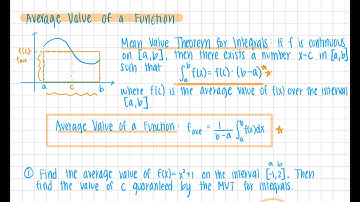 Average Value of a Function
f(c)
fave
a c b
Mean Value Theorem for Integrals: If f is continuous
on [a,b], then there exists a number x=c in [a,b]
such that ∫_a^b f(x) = f(c) · (b-a) *
where f(c) is the average value of f(x) over the interval
[a,b]
Average Value of a Function: fave = 1/(b-a) ∫_a^b f(x)dx
a b
① Find the average value of f(x)=x²+1 on the interval [-1,2]. Then
find the value of c guaranteed by the MVT for integrals.